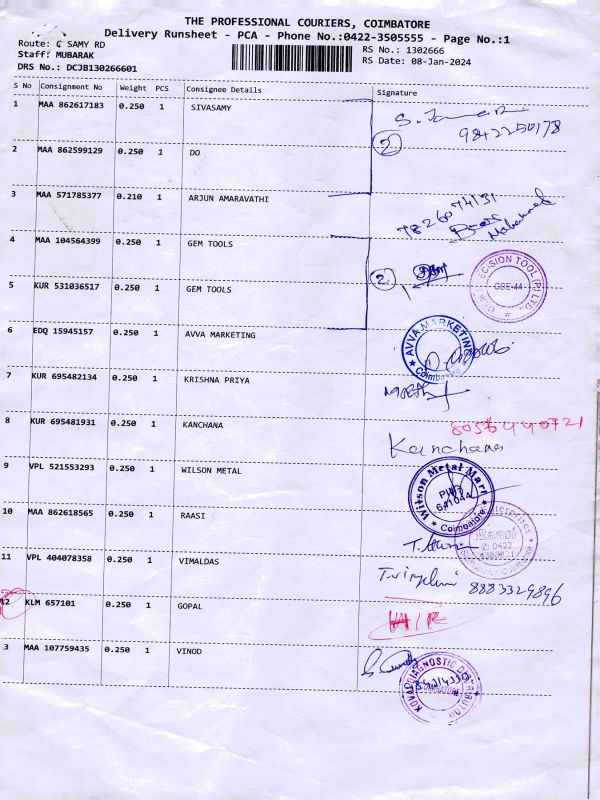 THE PROFESSIONAL COURIERS, COIMBATORE
Delivery Runsheet - PCA - Phone No.:0422-3505555 - Page No.:1
Route: C SAMY RD
RS No.: 1302666
Staff: MUBARAK
RS Date: 08-Jan-2024
DRS No.: DCJB130266601
S No Consignment No Weight PCS Consignee Details Signature
1 MAA 862617183 0.250 1 SIVASAMY
9842250178
2
2 MAA 862599129 0.250 1 DO
3 MAA 571785377 0.210 1 ARJUN AMARAVATHI
7826074131
4 MAA 104564399 0.250 1 GEM TOOLS
2
ECISION TOOL (P) LTD.
CBE-44
5 KUR 531036517 0.250 1 GEM TOOLS
6 EDQ 15945157 0.250 1 AVVA MARKETING
AVVA MARKETING
Coimbatore
7 KUR 695482134 0.250 1 KRISHNA PRIYA
8056440721
8 KUR 695481931 0.250 1 KANCHANA
Kanchana
9 VPL 521553293 0.250 1 WILSON METAL
Wilson Metal Mart
Coimbatore
10 MAA 862618565 0.250 1 RAASI
0422
11 VPL 404078358 0.250 1 VIMALDAS
8883329896
12 KLM 657101 0.250 1 GOPAL
3 MAA 107759435 0.250 1 VINOD
KOVAI DIAGNOSTIC DISTRIBUTOR
COIMBATORE